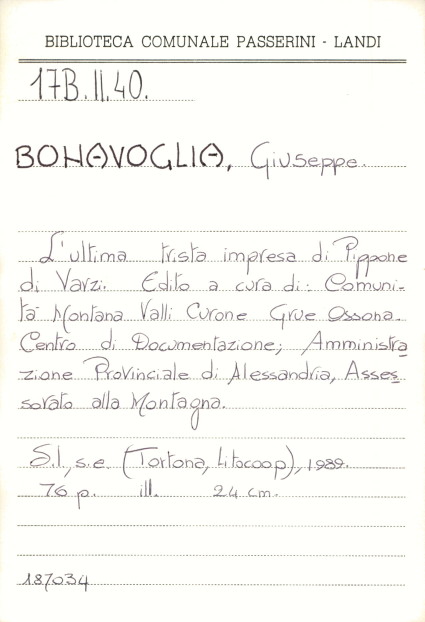 BIBLIOTECA COMUNALE PASSERINI - LANDI
17B.II.40.
BONAVOGLIA, Giuseppe.
L'ultima trista impresa di Pippone
di Varzi. Edito a cura di: Comuni-
tà Montana Valli Curone Grue Ossona.
Centro di Documentazione; Amministra
zione Provinciale di Alessandria, Asses
sorato alla Montagna.
S.l., s.e. (Tortona, Litocoop), 1989.
76 p. ill. 24 cm.
187034